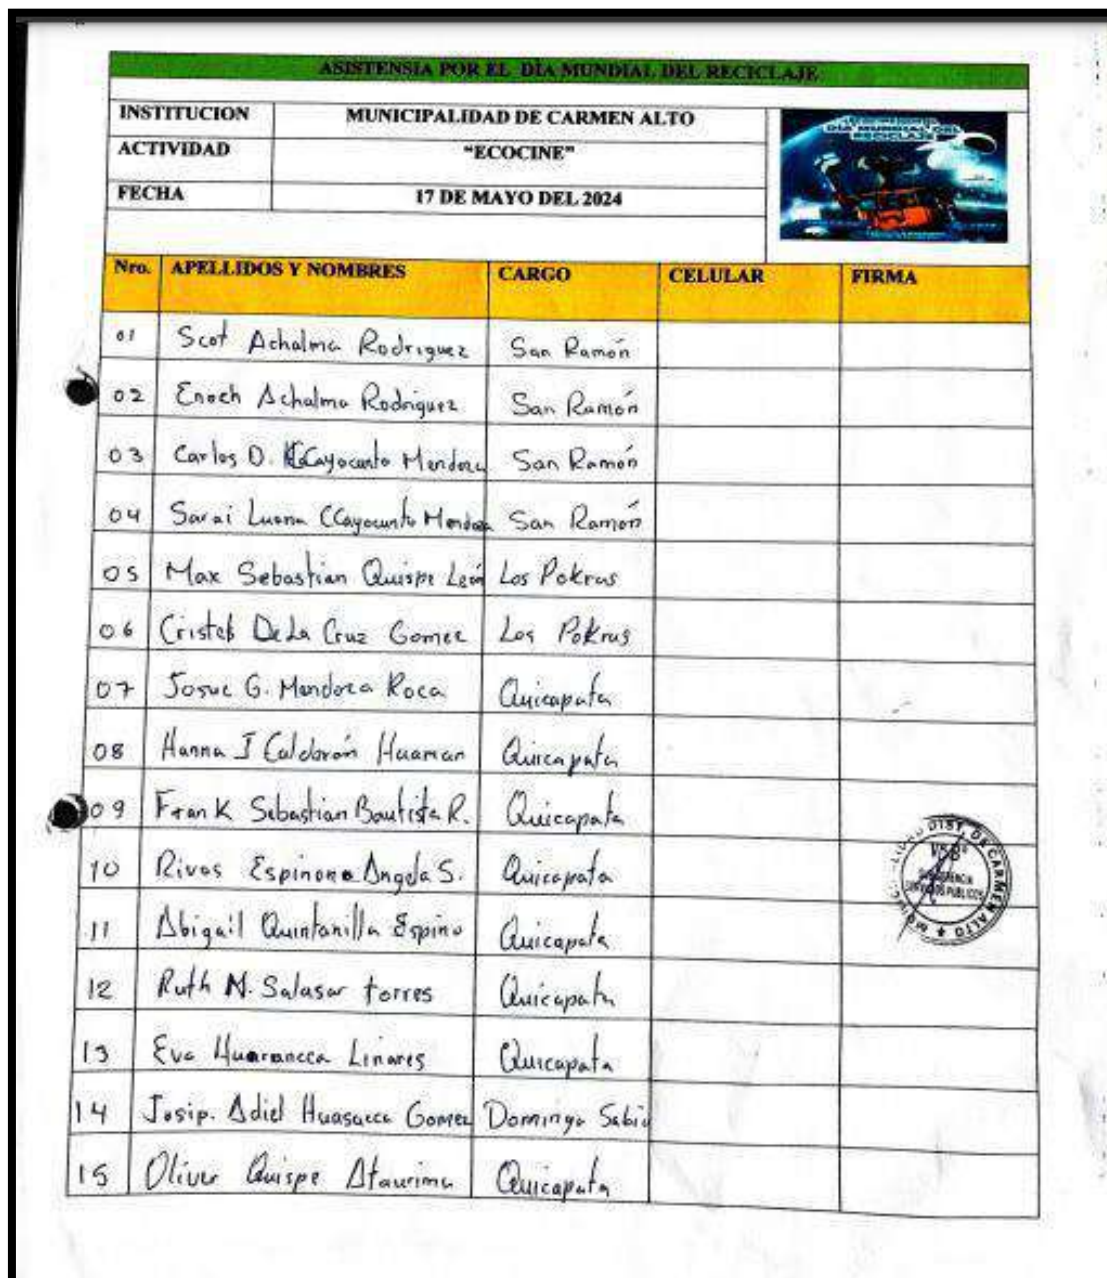 ASISTENSIA POR EL DÍA MUNDIAL DEL RECICLAJE
INSTITUCION MUNICIPALIDAD DE CARMEN ALTO
ACTIVIDAD "ECOCINE"
FECHA 17 DE MAYO DEL 2024
DIA MUNDIAL DEL
RECICLAJE
Nro. APELLIDOS Y NOMBRES CARGO CELULAR FIRMA
01 Scot Achalma Rodriguez San Ramón
02 Enoch Achalma Rodriguez San Ramón
03 Carlos D. CCayocunto Mendoza San Ramón
04 Sarai Luana CCayocunto Mendoza San Ramón
05 Max Sebastian Quispe León Los Pokras
06 Cristob De La Cruz Gomez Los Pokras
07 Josue G. Mendoza Roca Quicapata
08 Hanna J Calderón Huaman Quicapata
09 Frank Sebastian Bautista R. Quicapata
10 Rivas Espinone Angela S. Quicapata
11 Abigail Quintanilla Espino Quicapata
12 Ruth N. Salasar torres Quicapata
13 Eva Huarancca Linares Quicapata
14 Josip. Adiel Huasacca Gomez Domingo Sabio
15 Oliver Quispe Ataurima Quicapata
DIST. DE CARMEN ALTO
V°B°
SERVICIOS PUBLICOS